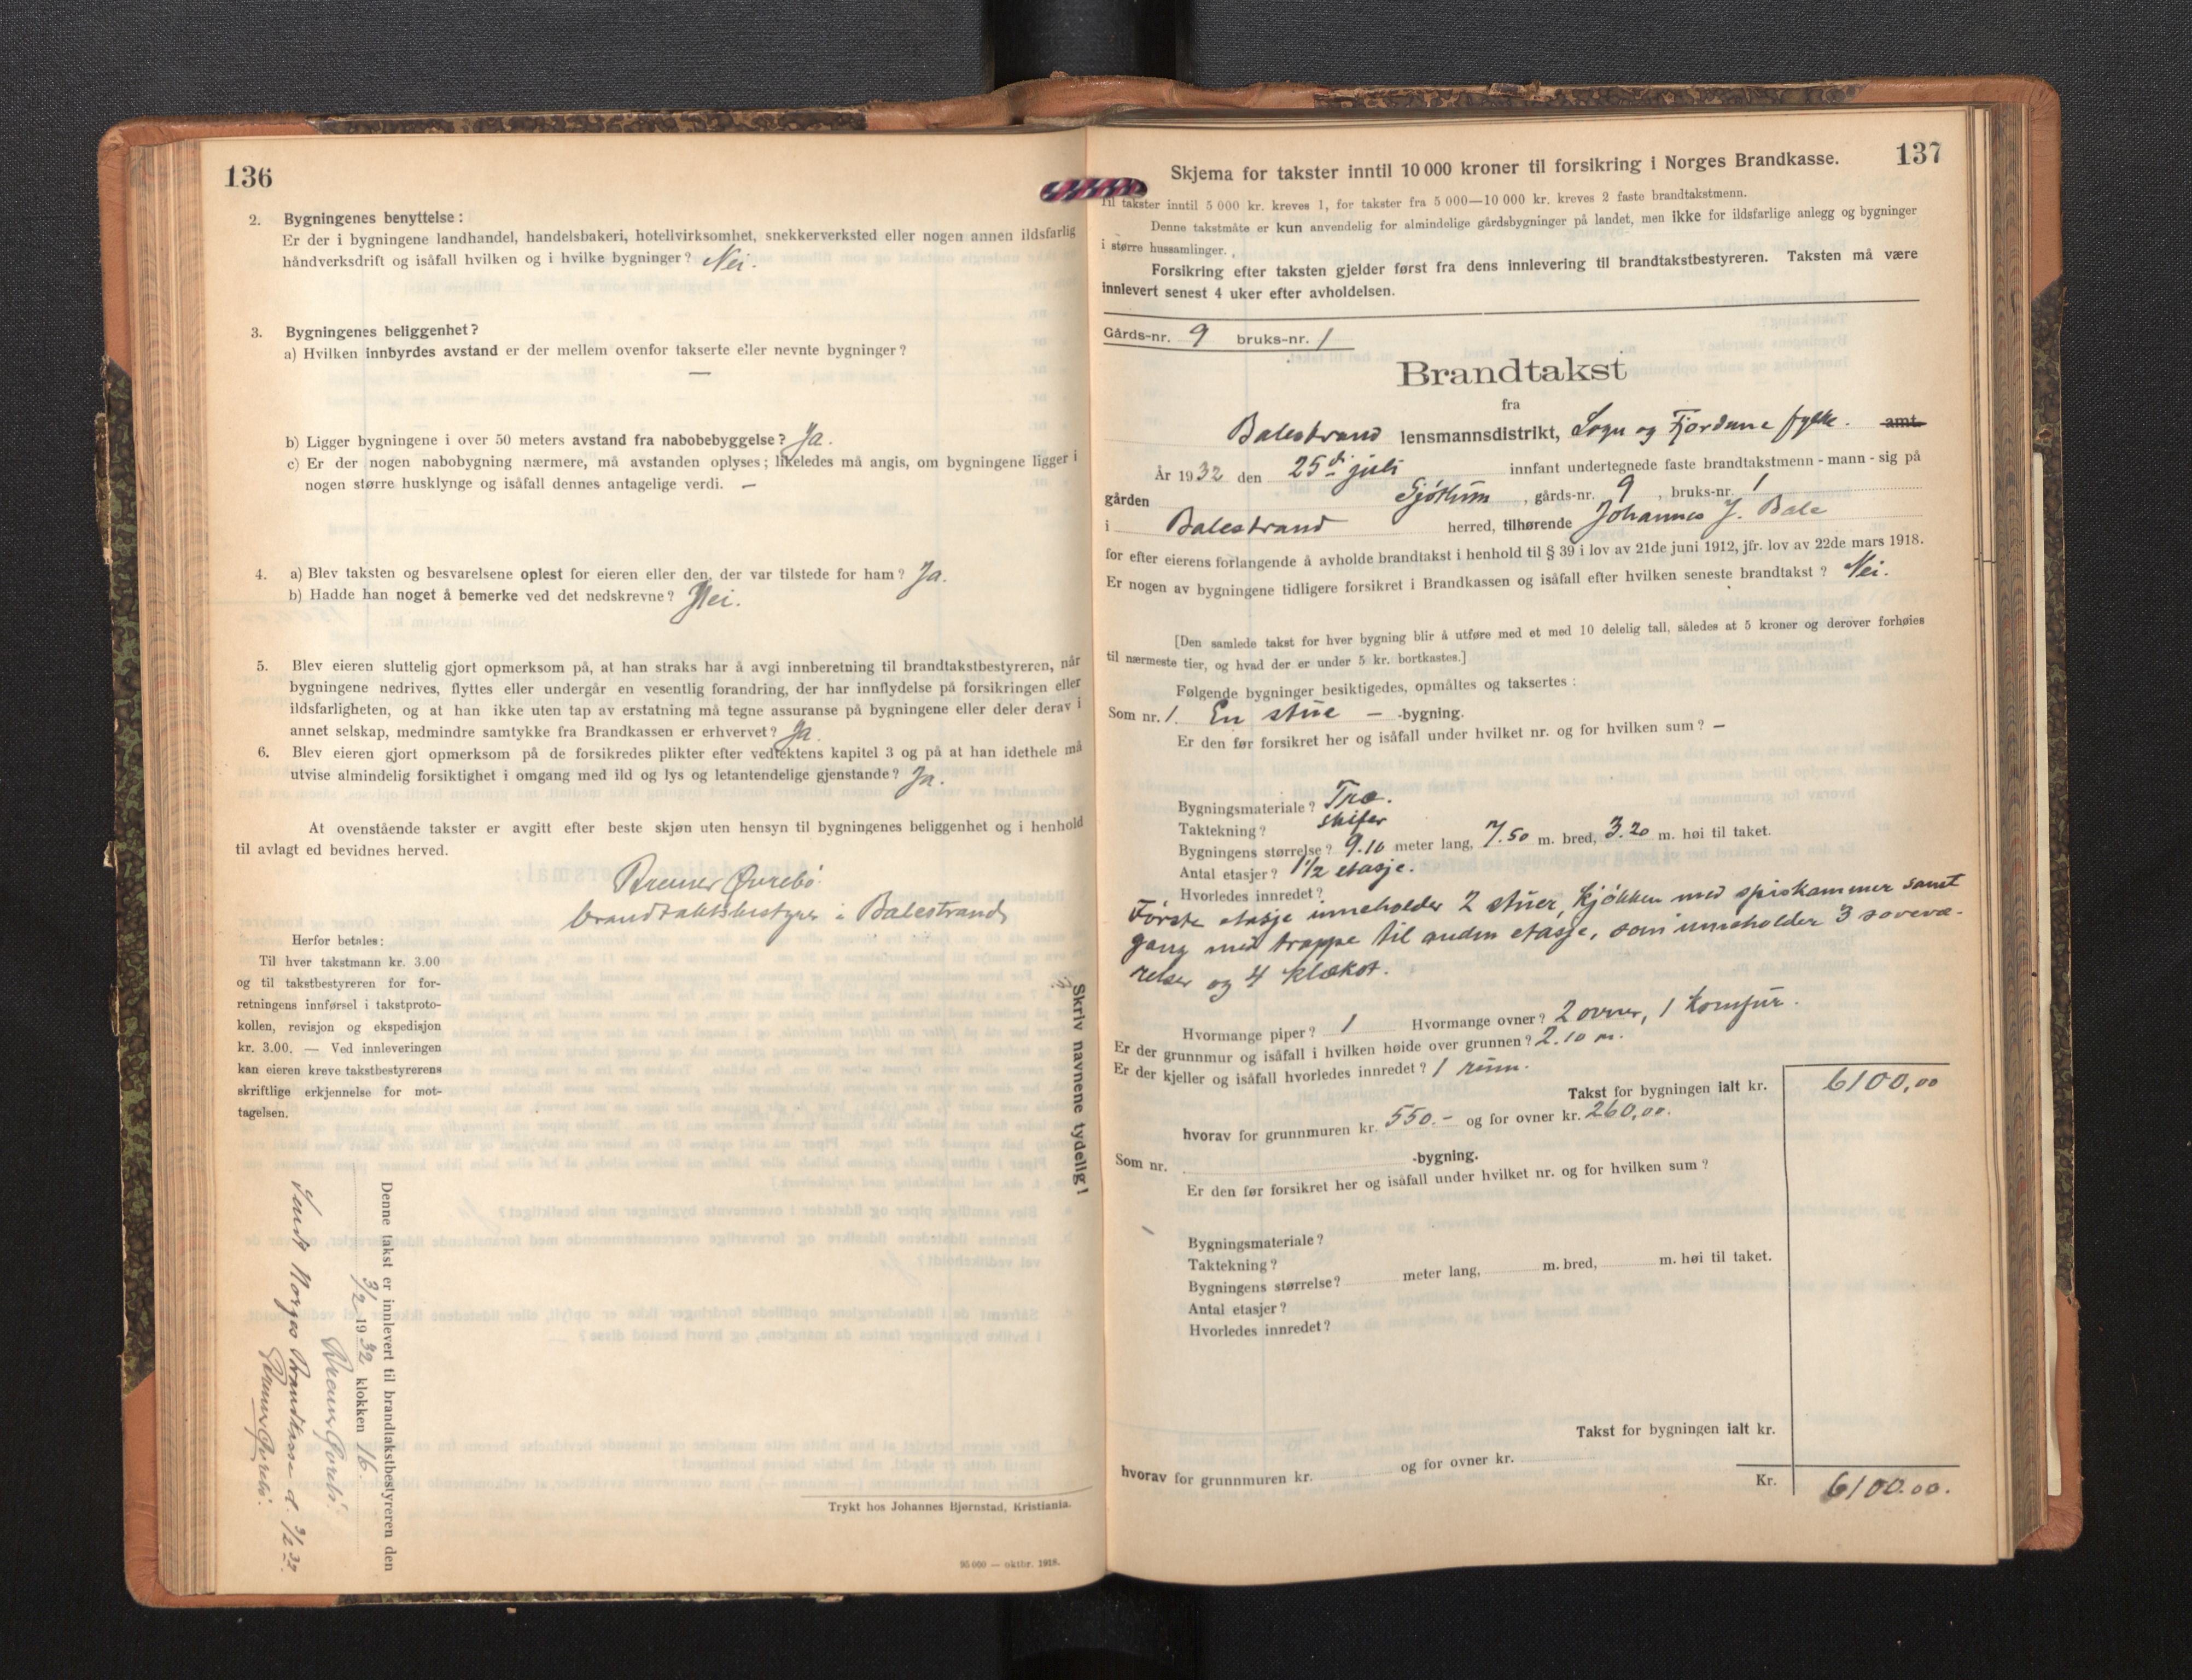 136
2. Bygningenes benyttelse:
Er der i bygningene landhandel, handelsbakeri, hotellvirksomhet, snekkerverksted eller nogen annen ildsfarlig
håndverksdrift og isåfall hvilken og i hvilke bygninger? Nei.
3. Bygningenes beliggenhet?
a) Hvilken innbyrdes avstand er der mellem ovenfor takserte eller nevnte bygninger?
—
b) Ligger bygningene i over 50 meters avstand fra nabobebyggelse? Ja.
c) Er der nogen nabobygning nærmere, må avstanden oplyses; likeledes må angis, om bygningene ligger i
nogen større husklynge og isåfall dennes antagelige verdi. —
4. a) Blev taksten og besvarelsene oplest for eieren eller den, der var tilstede for ham? Ja.
b) Hadde han noget å bemerke ved det nedskrevne? Nei.
5. Blev eieren sluttelig gjort opmerksom på, at han straks har å avgi innberetning til brandtakstbestyreren, når
bygningene nedrives, flyttes eller undergår en vesentlig forandring, der har innflydelse på forsikringen eller
ildsfarligheten, og at han ikke uten tap av erstatning må tegne assuranse på bygningene eller deler derav i
annet selskap, medmindre samtykke fra Brandkassen er erhvervet? Ja
6. Blev eieren gjort opmerksom på de forsikredes plikter efter vedtektens kapitel 3 og på at han idethele må
utvise almindelig forsiktighet i omgang med ild og lys og letantendelige gjenstande? Ja.
At ovenstående takster er avgitt efter beste skjøn uten hensyn til bygningenes beliggenhet og i henhold
til avlagt ed bevidnes herved.
Øvrebø
brandtakstbestyrer i Balestrand
Herfor betales:
Til hver takstmann kr. 3.00
og til takstbestyreren for for-
retningens innførsel i takstproto-
kollen, revisjon og ekspedisjon
kr. 3.00. — Ved innleveringen
kan eieren kreve takstbestyrerens
skriftlige erkjennelse for mot-
tagelsen.
Skriv navnene tydelig!
Denne takst er innlevert til brandtakstbestyreren den
3/2 1932 klokken 16.
Sendt Norges Brandkasse d. 3/2 32.
Trykt hos Johannes Bjørnstad, Kristiania.
95 000 — oktbr. 1918.
137
Skjema for takster inntil 10 000 kroner til forsikring i Norges Brandkasse.
Til takster inntil 5 000 kr. kreves 1, for takster fra 5 000—10 000 kr. kreves 2 faste brandtakstmenn.
Denne takstmåte er kun anvendelig for almindelige gårdsbygninger på landet, men ikke for ildsfarlige anlegg og bygninger
i større hussamlinger.
Forsikring efter taksten gjelder først fra dens innlevering til brandtakstbestyreren. Taksten må være
innlevert senest 4 uker efter avholdelsen.
Gårds-nr. 9 bruks-nr. 1
Brandtakst
fra
Balestrand lensmannsdistrikt, Sogn og Fjordane fylke. amt.
År 1932 den 25de juli innfant undertegnede faste brandtakstmenn - mann - sig på
gården Sjøtun, gårds-nr. 9, bruks-nr. 1
i Balestrand herred, tilhørende Johannes J. Bale
for efter eierens forlangende å avholde brandtakst i henhold til § 39 i lov av 21de juni 1912, jfr. lov av 22de mars 1918.
Er nogen av bygningene tidligere forsikret i Brandkassen og isåfall efter hvilken seneste brandtakst? Nei.
[Den samlede takst for hver bygning blir å utføre med et med 10 delelig tall, således at 5 kroner og derover forhøies
til nærmeste tier, og hvad der er under 5 kr. bortkastes.]
Følgende bygninger besiktigedes, opmåltes og taksertes:
Som nr. 1. En stue — -bygning.
Er den før forsikret her og isåfall under hvilket nr. og for hvilken sum? —
Bygningsmateriale? Træ.
Taktekning? skifer
Bygningens størrelse? 9.10 meter lang, 7.50 m. bred, 3.20 m. høi til taket.
Antal etasjer? 1 1/2 etasje.
Hvorledes innredet?
Første etasje inneholder 2 stuer, kjøkken med spiskammer samt
gang med trappe til anden etasje, som inneholder 3 sovevæ-
relser og 4 klækot.
Hvormange piper? 1 Hvormange ovner? 2 ovner, 1 komfur.
Er der grunnmur og isåfall i hvilken høide over grunnen? 2.10 m.
Er der kjeller og isåfall hvorledes innredet? 1 rum.
Takst for bygningen ialt kr. 6100,00
hvorav for grunnmuren kr. 550.- og for ovner kr. 260,00.
Som nr. -bygning.
Er den før forsikret her og isåfall under hvilket nr. og for hvilken sum?
Bygningsmateriale?
Taktekning?
Bygningens størrelse? meter lang, m. bred, m. høi til taket.
Antal etasjer?
Hvorledes innredet?
Takst for bygningen ialt kr.
hvorav for grunnmuren kr. og for ovner kr.
Kr. 6100.00.